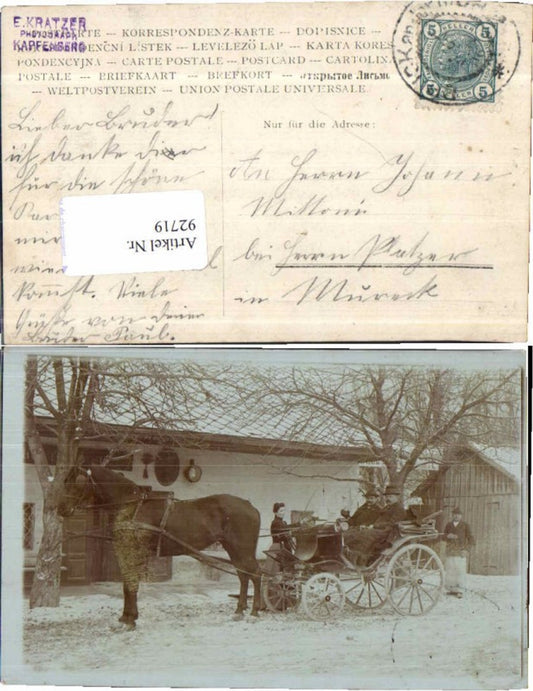 E. KRATZER
PHOTOGRAPH
KAPFENBERG
KARTE — KORRESPONDENZ-KARTE — DOPISNICE —
KORESPONDENČNÍ LÍSTEK — LEVELEZŐ LAP — KARTA KORES-
PONDENCYJNA — CARTE POSTALE — POSTCARD — CARTOLINA
POSTALE — BRIEFKAART — BREFKORT — открытое Письмо
— WELTPOSTVEREIN — UNION POSTALE UNIVERSALE.
5 HELLER 5
5 5
Nur für die Adresse:
Lieber Bruder!
ich danke dir
für die schöne
wie
kommst. Viele
Grüße von deinen
Bruder Paul.
Artikel Nr.
92719
An Herrn Johann
Mittoni
bei Herrn Platzer
in Mureck